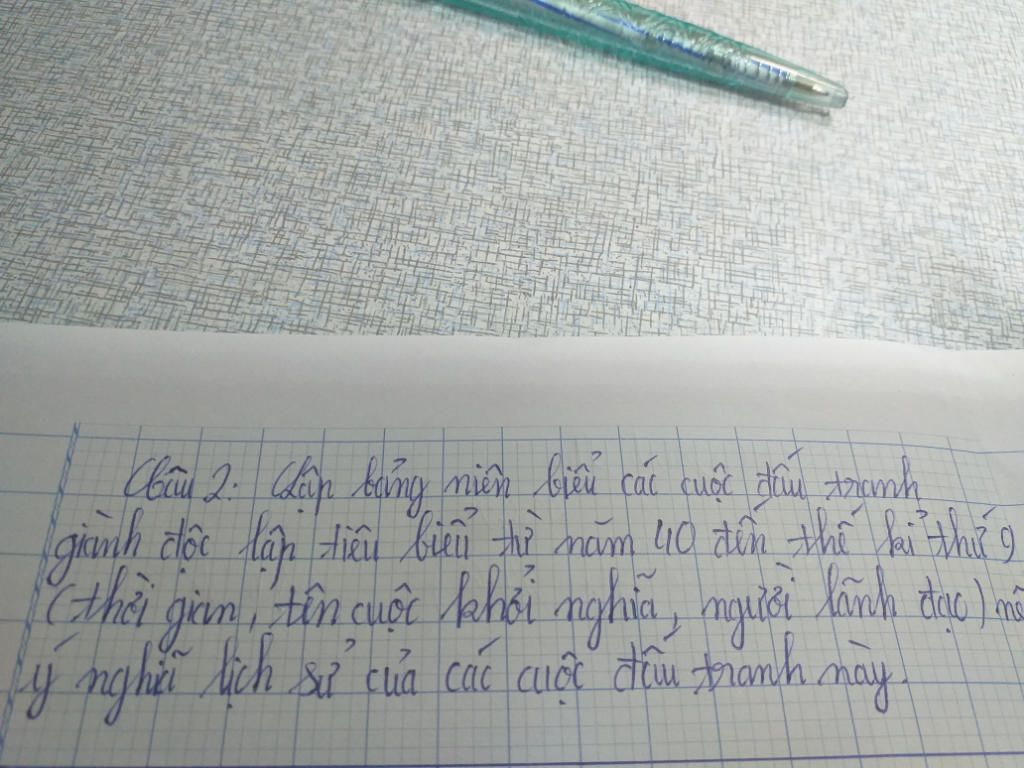 Câu 2: Lập bảng niên biểu các cuộc đấu tranh
giành độc lập tiêu biểu từ năm 40 đến thế kỉ thứ 9
(thời gian, tên cuộc khởi nghĩa, người lãnh đạo) nê
ý nghĩa lịch sử của các cuộc đấu tranh này.